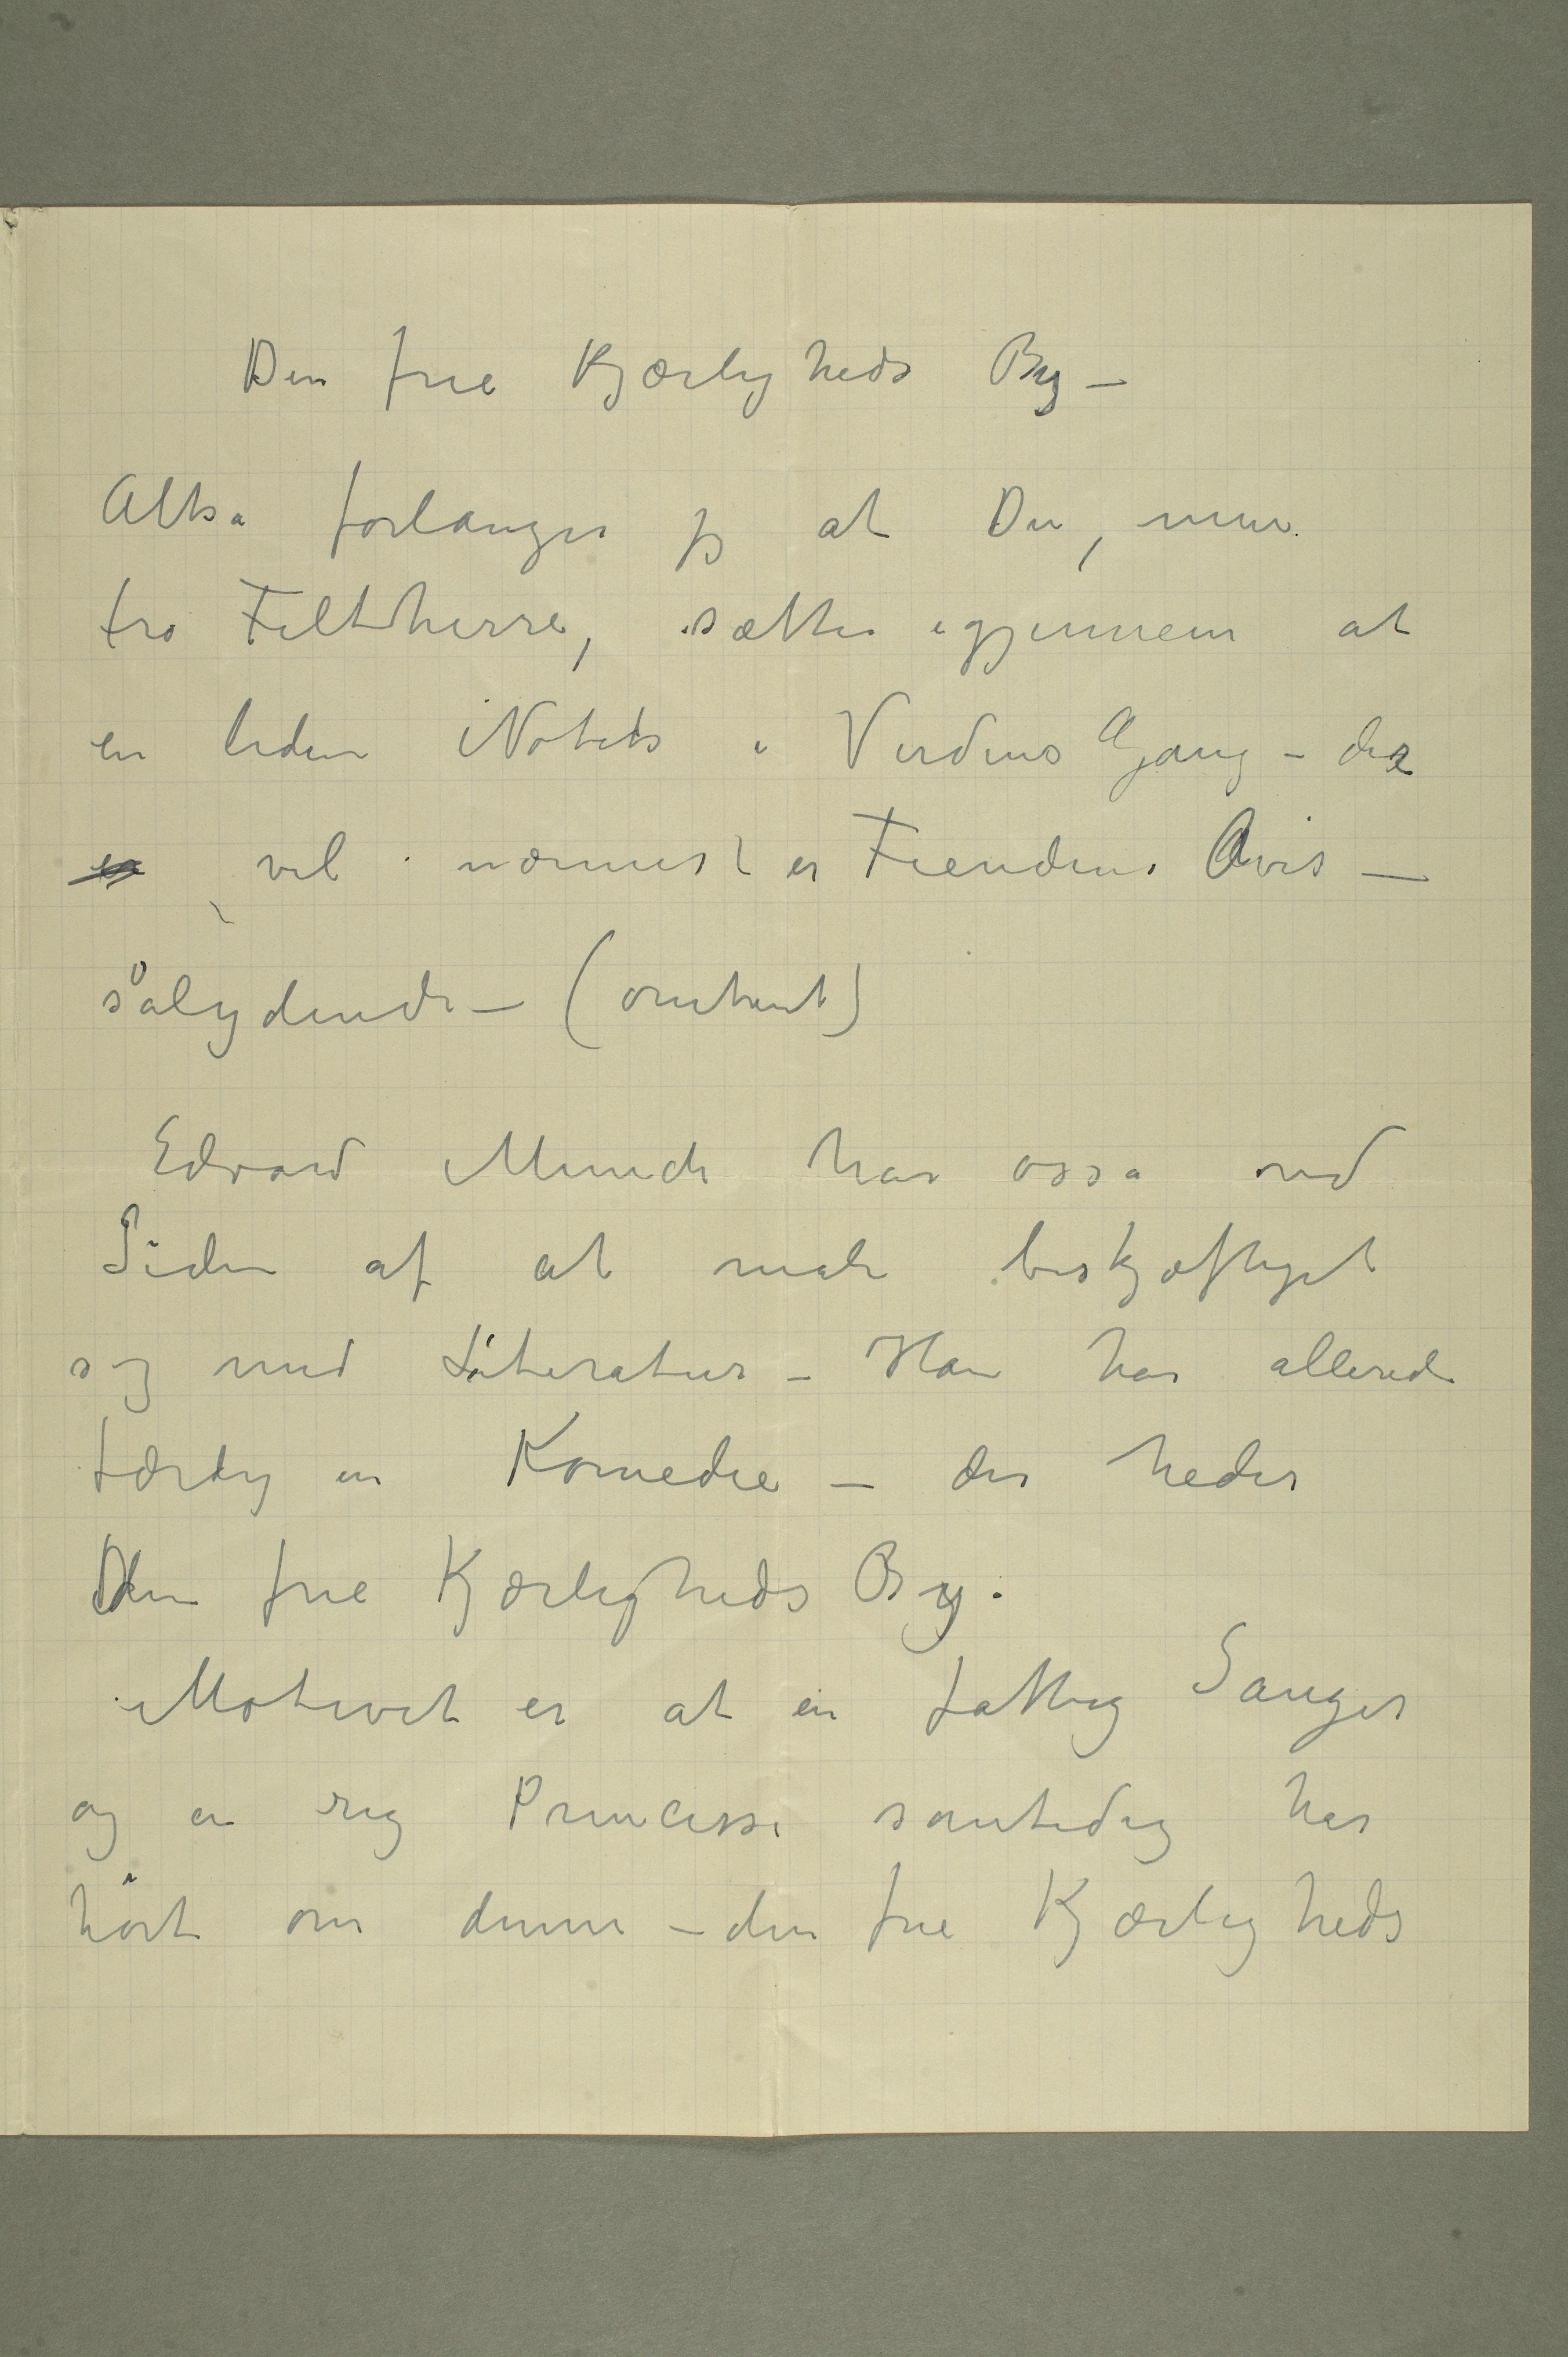 Den frie Kjærligheds By –
Altså forlanger jeg at Du, min
tro Feltherre, sætter igjennem at
en liden Notits i Verdens Gang – der
vel nærmest er Fiendens Avis –
sålydende – (omtrent)
Edvard Munch har osså ved
Siden af at male beskjæftiget
sig med Literatur – Han har allerede
færdig en Komedie – der heder
Den frie Kjærligheds By.
Motivet er at en fattig Sanger
og en rig Princesse samtidig har
hørt om denne – den frie Kjærligheds